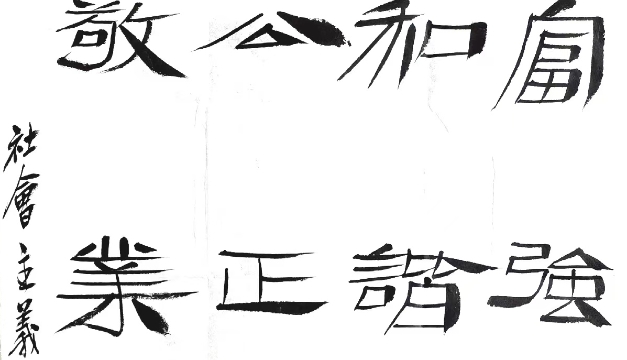 富强
和諧
公正
敬業
社會主義